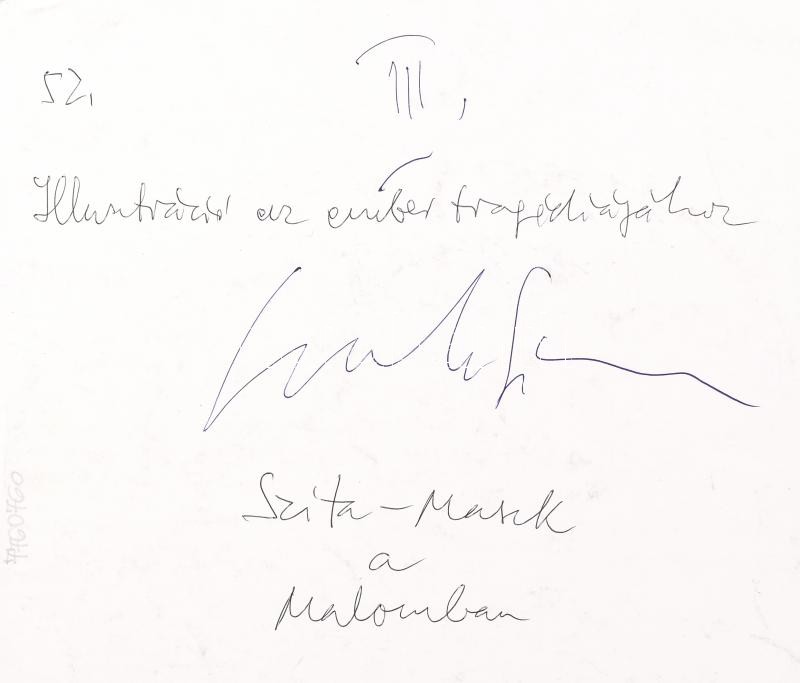 52. III,
Illusztráció az ember tragédiájához
Szita - Masek
a
Malomban